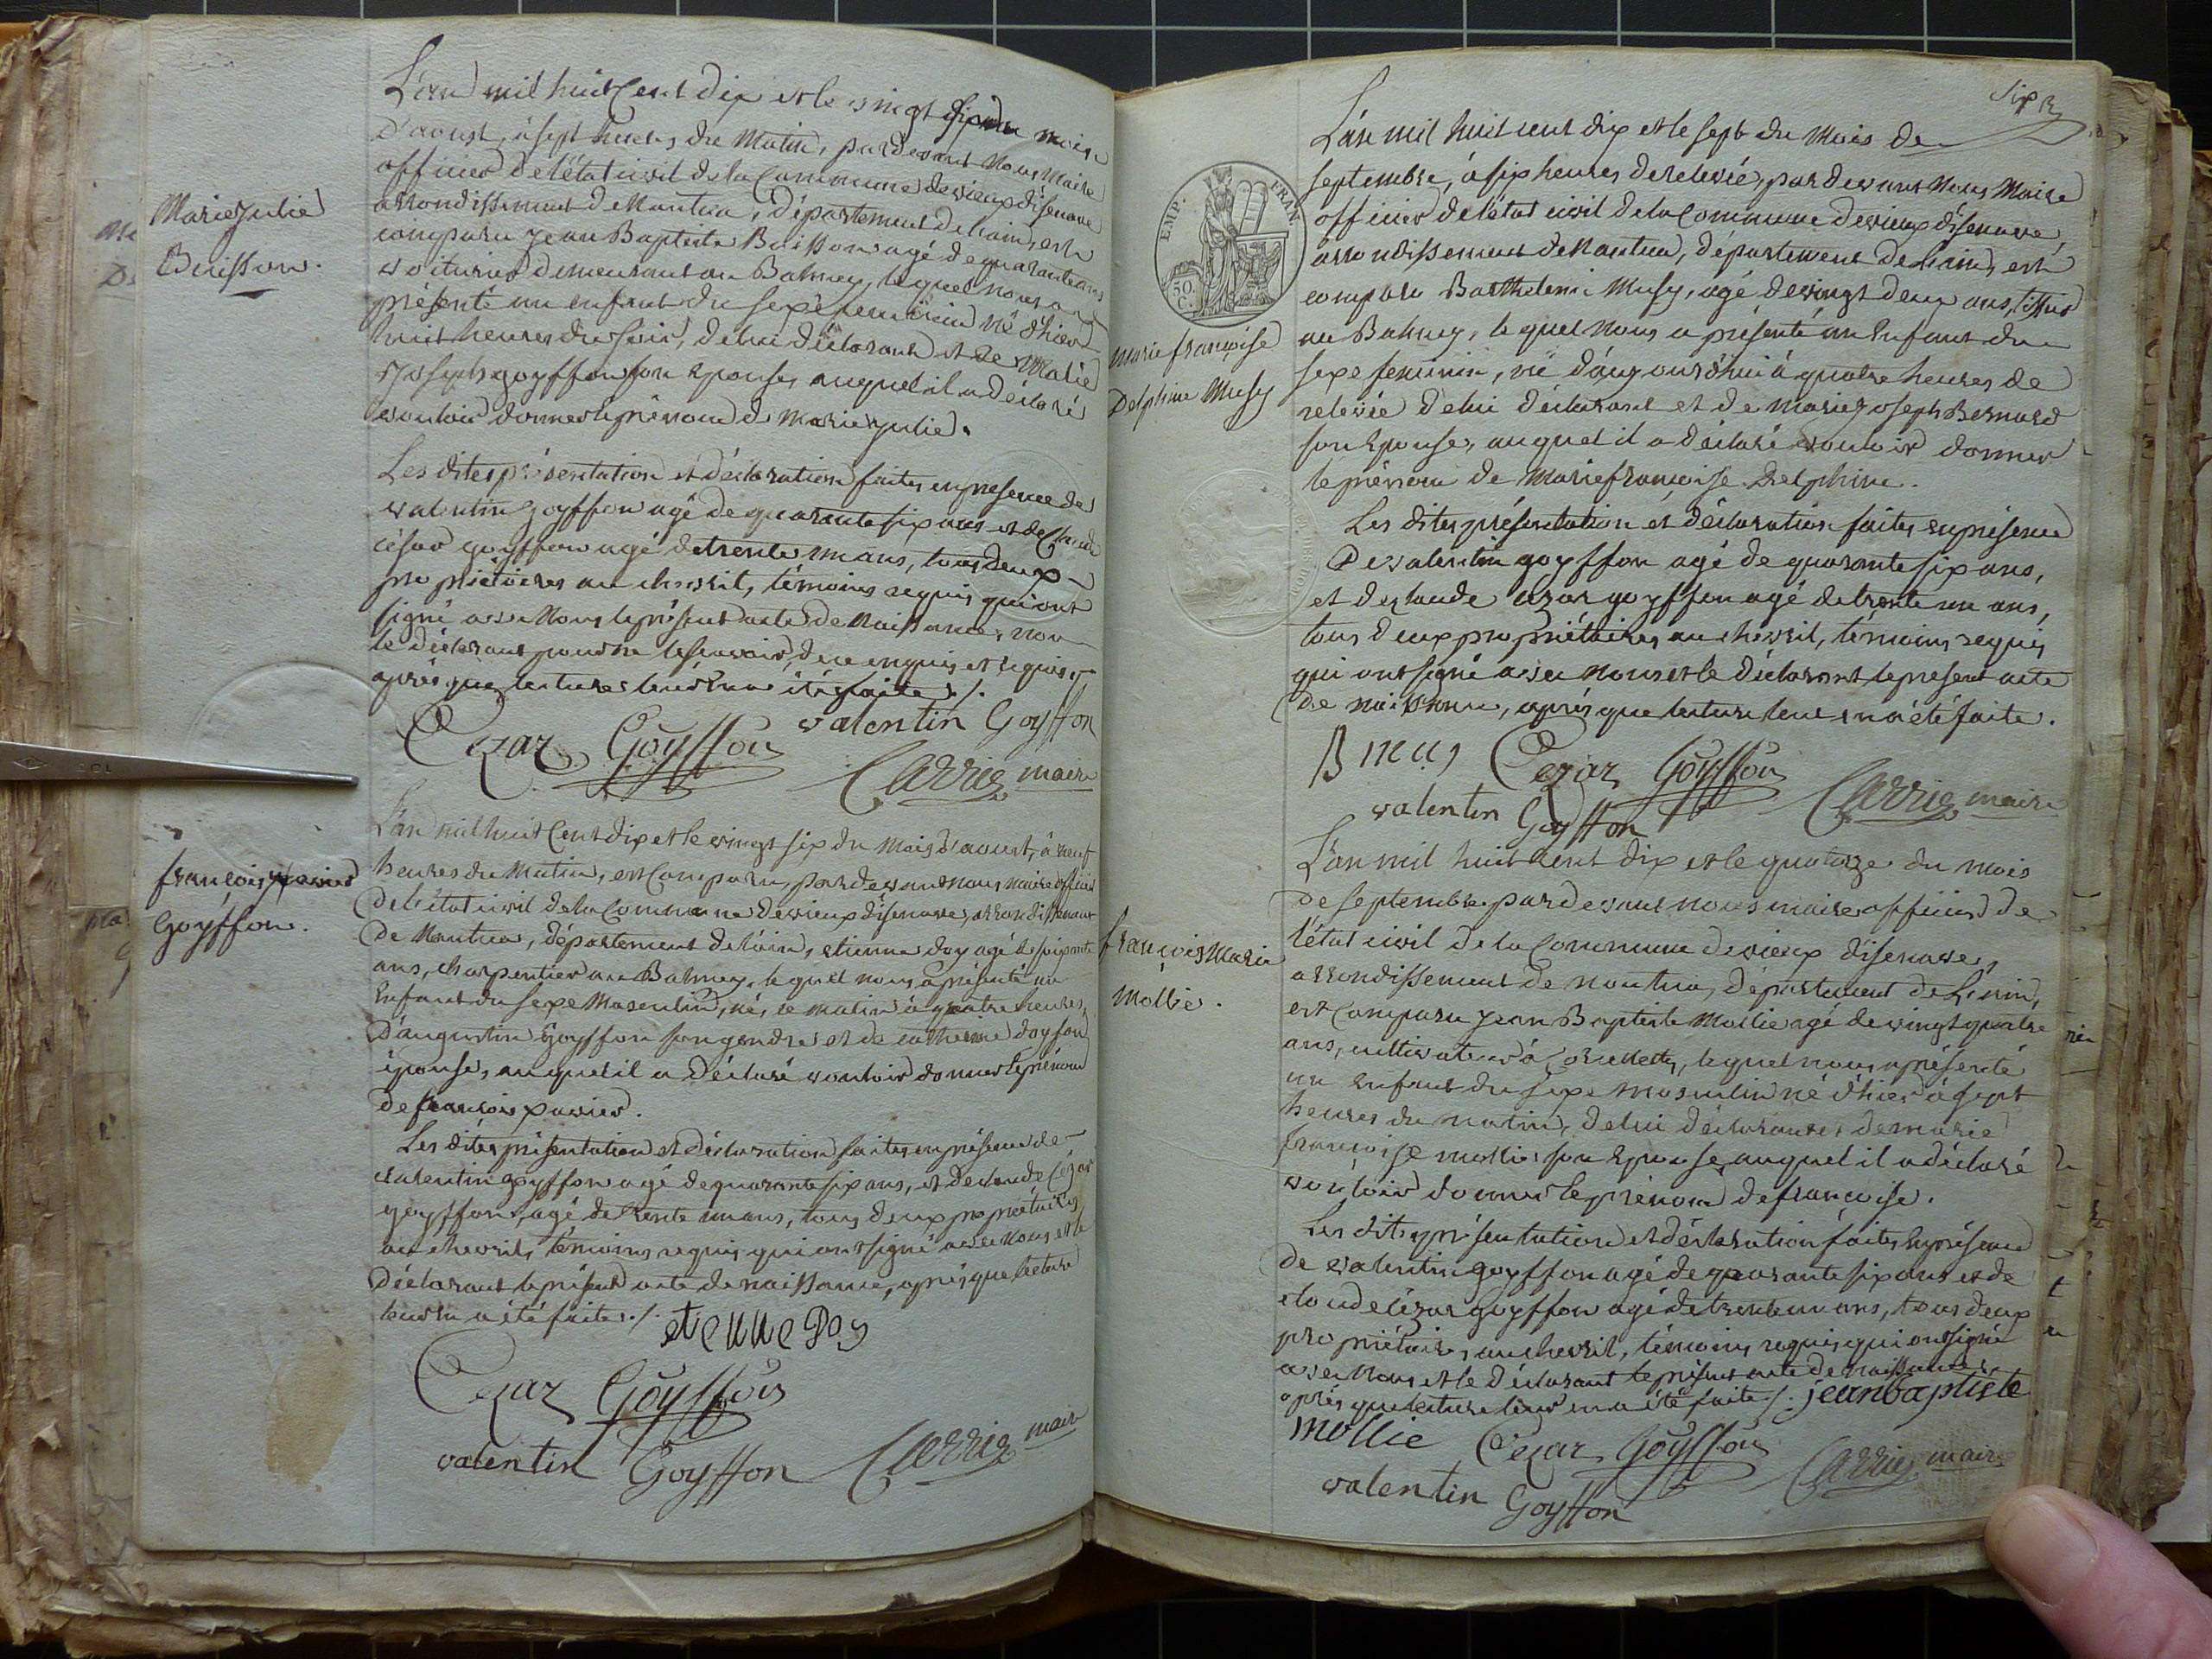 Marie Julie
Buisson.
L'an mil huit Cent dix et le vingt six du mois
d'aoust, à sept heures du Matin, pardevant Nous Maire
officier de l'état civil de la Commune de vieux d'isenave
arrondissement de Nantua, département de l'ain, est
comparu Jean Baptiste Buisson agé de quarante ans
voiturier demeurant au Balmey, lequel nous a
présenté un enfant du sexe feminin né d'hier
huit heures du soir, de lui déclarant et de Marie
Joseph goyffon son Epouse, auquel il a déclaré
vouloir donner le prénom de Marie Julie.
Les dites présentation et déclaration faites en presence de
valentin goyffon agé de quarante six ans et de Claude
césar goyffon agé de trente un ans, tous deux
propriétaires au chevril, témoins requis qui ont
signé avec Nous le présent acte de Naissance, non
le déclarant pour ne le savoir, de ce enquis et requis,
après que lecture leur en a été faite ./.
valentin Goyffon
Cezar Goyffon
Carrier maire
françois xavier
Goyffon.
L'an mil huit Cent dix et le vingt six du mois d'aoust, à neuf
heures du Matin, est Comparu, pardevant nous maire officier
de l'état civil de la Commune de vieux d'isenave, arrondissement
de Nantua, département de l'ain, etienne doy agé de soixante
ans, charpentier au Balmey, lequel nous a présenté un
Enfant du sexe Masculin, né, ce matin à quatre heures,
d'augustin Goyffon son gendre et de catherine doy son
épouse, auquel il a déclaré vouloir donner le prénom
de francois xavier.
Les dites présentation et déclaration faites en présence de
valentin goyffon agé de quarante six ans, et de claude Cézar
goyffon, agé de trente un ans, tous deux propriétaires
au chevril, témoins requis qui ont signé avec Nous et le
Déclarant le présent acte de naissance, après que lecture
leur en a été faite ./.
etienne Doy
Cezar Goyffon
valentin Goyffon
Carrier maire
six
EMP. FRAN.
50. C.
marie françoise
Delphine Musy
L'an mil huit cent dix et le sept du Mois de
septembre, à six heures de relevée, par devant Nous Maire
officier de l'état civil de la Commune de vieux d'isenave,
arrondissement de Nantua, département de l'ain, est
comparu Barthelemi Musy, agé de vingt deux ans, tissier
au Balmey, lequel Nous a présenté un Enfant du
sexe feminin, né d'aujourd'hui à quatre heures de
relevée de lui déclarant et de Marie Joseph Bernard
son Epouse, auquel il a déclaré vouloir donner
le prénom de Marie françoise Delphine.
Les dites présentation et déclaration faites en présence
De valentin goyffon agé de quarante six ans,
et de claude cezar goyffon agé de trente un ans,
tous deux propriétaires au chevril, témoins requis
qui ont signé avec nous et le déclarant le present acte
de naissance, après que lecture leur en a été faite.
Cezar Goyffon
valentin Goyffon
Carrier maire
francois Marie
Mollie.
L'an mil huit Cent dix et le quatorze du mois
de septembre par devant nous maire officier de
l'état civil de la Commune de vieux d'isenave,
arrondissement de nantua, département de L'ain,
est Comparu Jean Baptiste Mollie agé de vingt quatre
ans, cultivateur à lequel nous a présenté
un Enfant du sexe masculin né d'hier à sept
heures du matin, de lui déclarant et de marie
francoise mollie son Epouse, auquel il a déclaré
vouloir donner le prénom de francoise.
Les dites présentation et déclaration faites En présence
de valentin goyffon agé de quarante six ans et de
claude cézar goyffon agé de trente un ans, tous deux
propriétaires, au chevril, témoins requis qui ont signé
avec nous et le déclarant le présent acte de naissance
après que lecture leur en a été faite ./. jean baptiste
mollie Cezar Goyffon
valentin Goyffon
Carrier maire